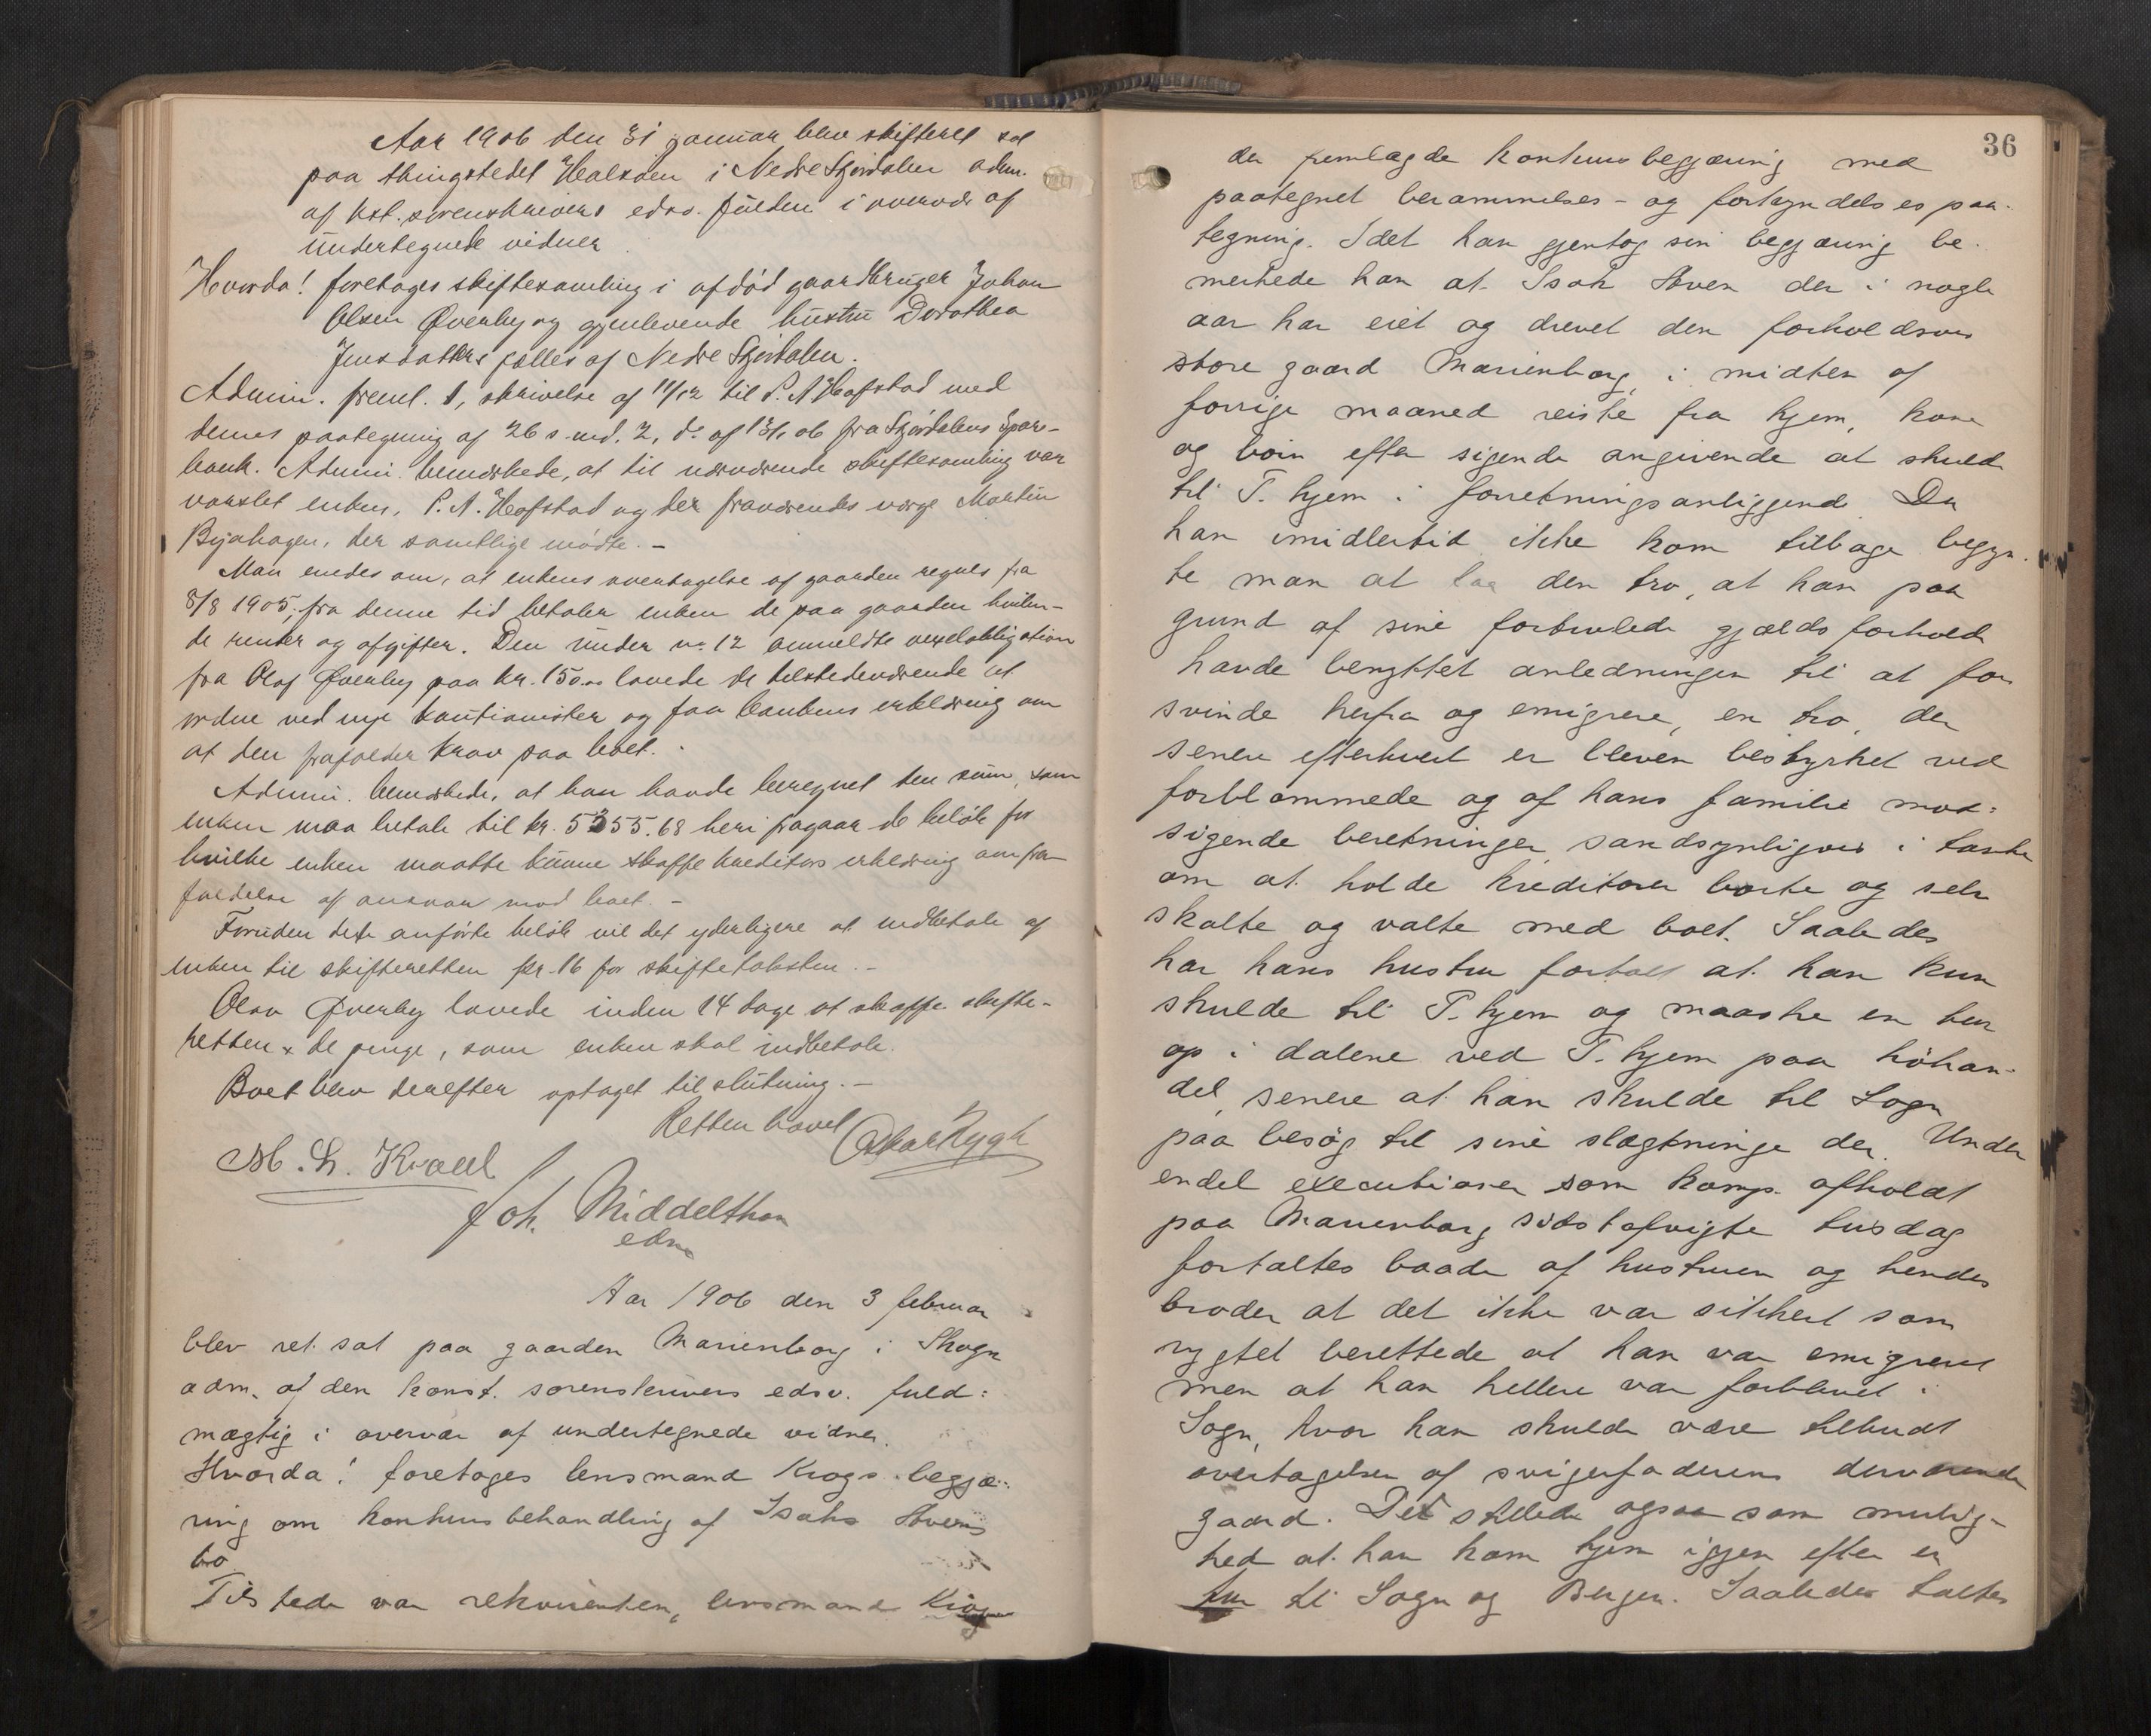 Aar 1906 den 31 januar blev skifteret sat
paa thingstedet Halsøen i Nedre Stjørdalen adm.
af kst. sorenskrivers edsv. fuldm. i overvær af
undertegnede vidner
Hvorda! foretoges skiftesamling i afdød gaardbruger Johan
Olsen Øverby og gjenlevende hustru Dorothea
Jensdatters fælles af Nedre Stjørdalen.
Admin. freml. 1, skrivelse af 11/12 til P. A. Hofstad med
dennes paategning af 26 s. md. 2, do af 13/1 06 fra Stjørdalens Spare-
bank. Admin. bemærkede, at til nærværende skiftesamling var
varslet enken, P. A. Hofstad og den fraværendes værge Martin
Bjahagen, der samtlige mødte. -
Man enedes om, at enkens overtagelse af gaarden regnes fra
8/8 1905; fra denne tid betaler enken de paa gaarden hvilen-
de renter og afgifter. Den under no 12 anmeldte vexelobligation
fra Olaf Øverby paa kr. 150.00 lovede de tilstedeværende at
ordne ved nye kautionister og faa bankens erklæring om
at den frafalder krav paa boet. -
Admin. bemærkede, at han havde beregnet den sum, som
enken maa betale til kr. 5355.68 heri fragaar de beløb for
hvilke enken maatte kunne skaffe kreditors erklæring om fra-
faldelse af ansvar mod boet. -
Foruden dette anførte beløb vil det yderligere at indbetale af
enken til skifteretten kr. 16 for skiftetaksten. -
Olav Øverby lovede inden 14 dage at skaffe skifte-
retten x de penge, som enken skal indbetale.
Boet blev derefter optaget til slutning. -
Retten hævet Oskar Rygh
M. L. Kvaal
Joh. Middelthon
edsv.
Aar 1906 den 3 februar
blev ret sat paa gaarden Marienborg i Skogn
adm. af den konst. sorenskrivers edsv. fuld=
mægtig i overvær af undertegnede vidner.
Hvorda! foretoges lensmand Krogs begjæ-
ring om konkursbehandling af Isaks Hovens
bo
Tilstede var rekvirenten, lensmand Krog
36
der fremlagde konkursbegjæring med
paategnet berammelses- og forkyndelsespaa-
tegning. Idet han gjentog sin begjæring be-
merkede han at Isak Hoven der i nogle
aar har eiet og drevet den forholdsvis
store gaard Marienborg, i midten af
forrige maaned reiste fra hjem, kone
og børn efter sigende angivende at skulde
til T.hjem i forretningsanliggende. Da
han imidlertid ikke kom tilbage begyn-
te man at faa den tro, at han paa
grund af sine fortvilede gjældsforhold
havde benyttet anledningen til at for
svinde herfra og emigrere, en tro, der
senere efterhvert er bleven bestyrket ved
forblommede og af hans familie mod=
sigende beretninger sandsynligvis i tanke
om at holde kreditorer borte og selv
skalte og valte med boet. Saaledes
har hans hustru fortalt at han kun
skulde til T.hjem og maaske en tur
op i dalene ved T.hjem paa høhan-
del, senere at han skulde til Sogn
paa besøg til sine slægtninge der. Under
endel executioner som komp. afholdt
paa Marienborg sidstafvigte tirsdag
fortaltes baade af hustruen og hendes
broder at det ikke var sikkert som
rygtet berettede at han var emigreret
men at han heller var forblevet i
Sogn, hvor han skulde være tilbudt
overtagelsen af svigerfaderens derværende
gaard. Det stilledes ogsaa som mulig-
hed at han kom hjem igjen efter en
tur til Sogn og Bergen. Saaledes taltes